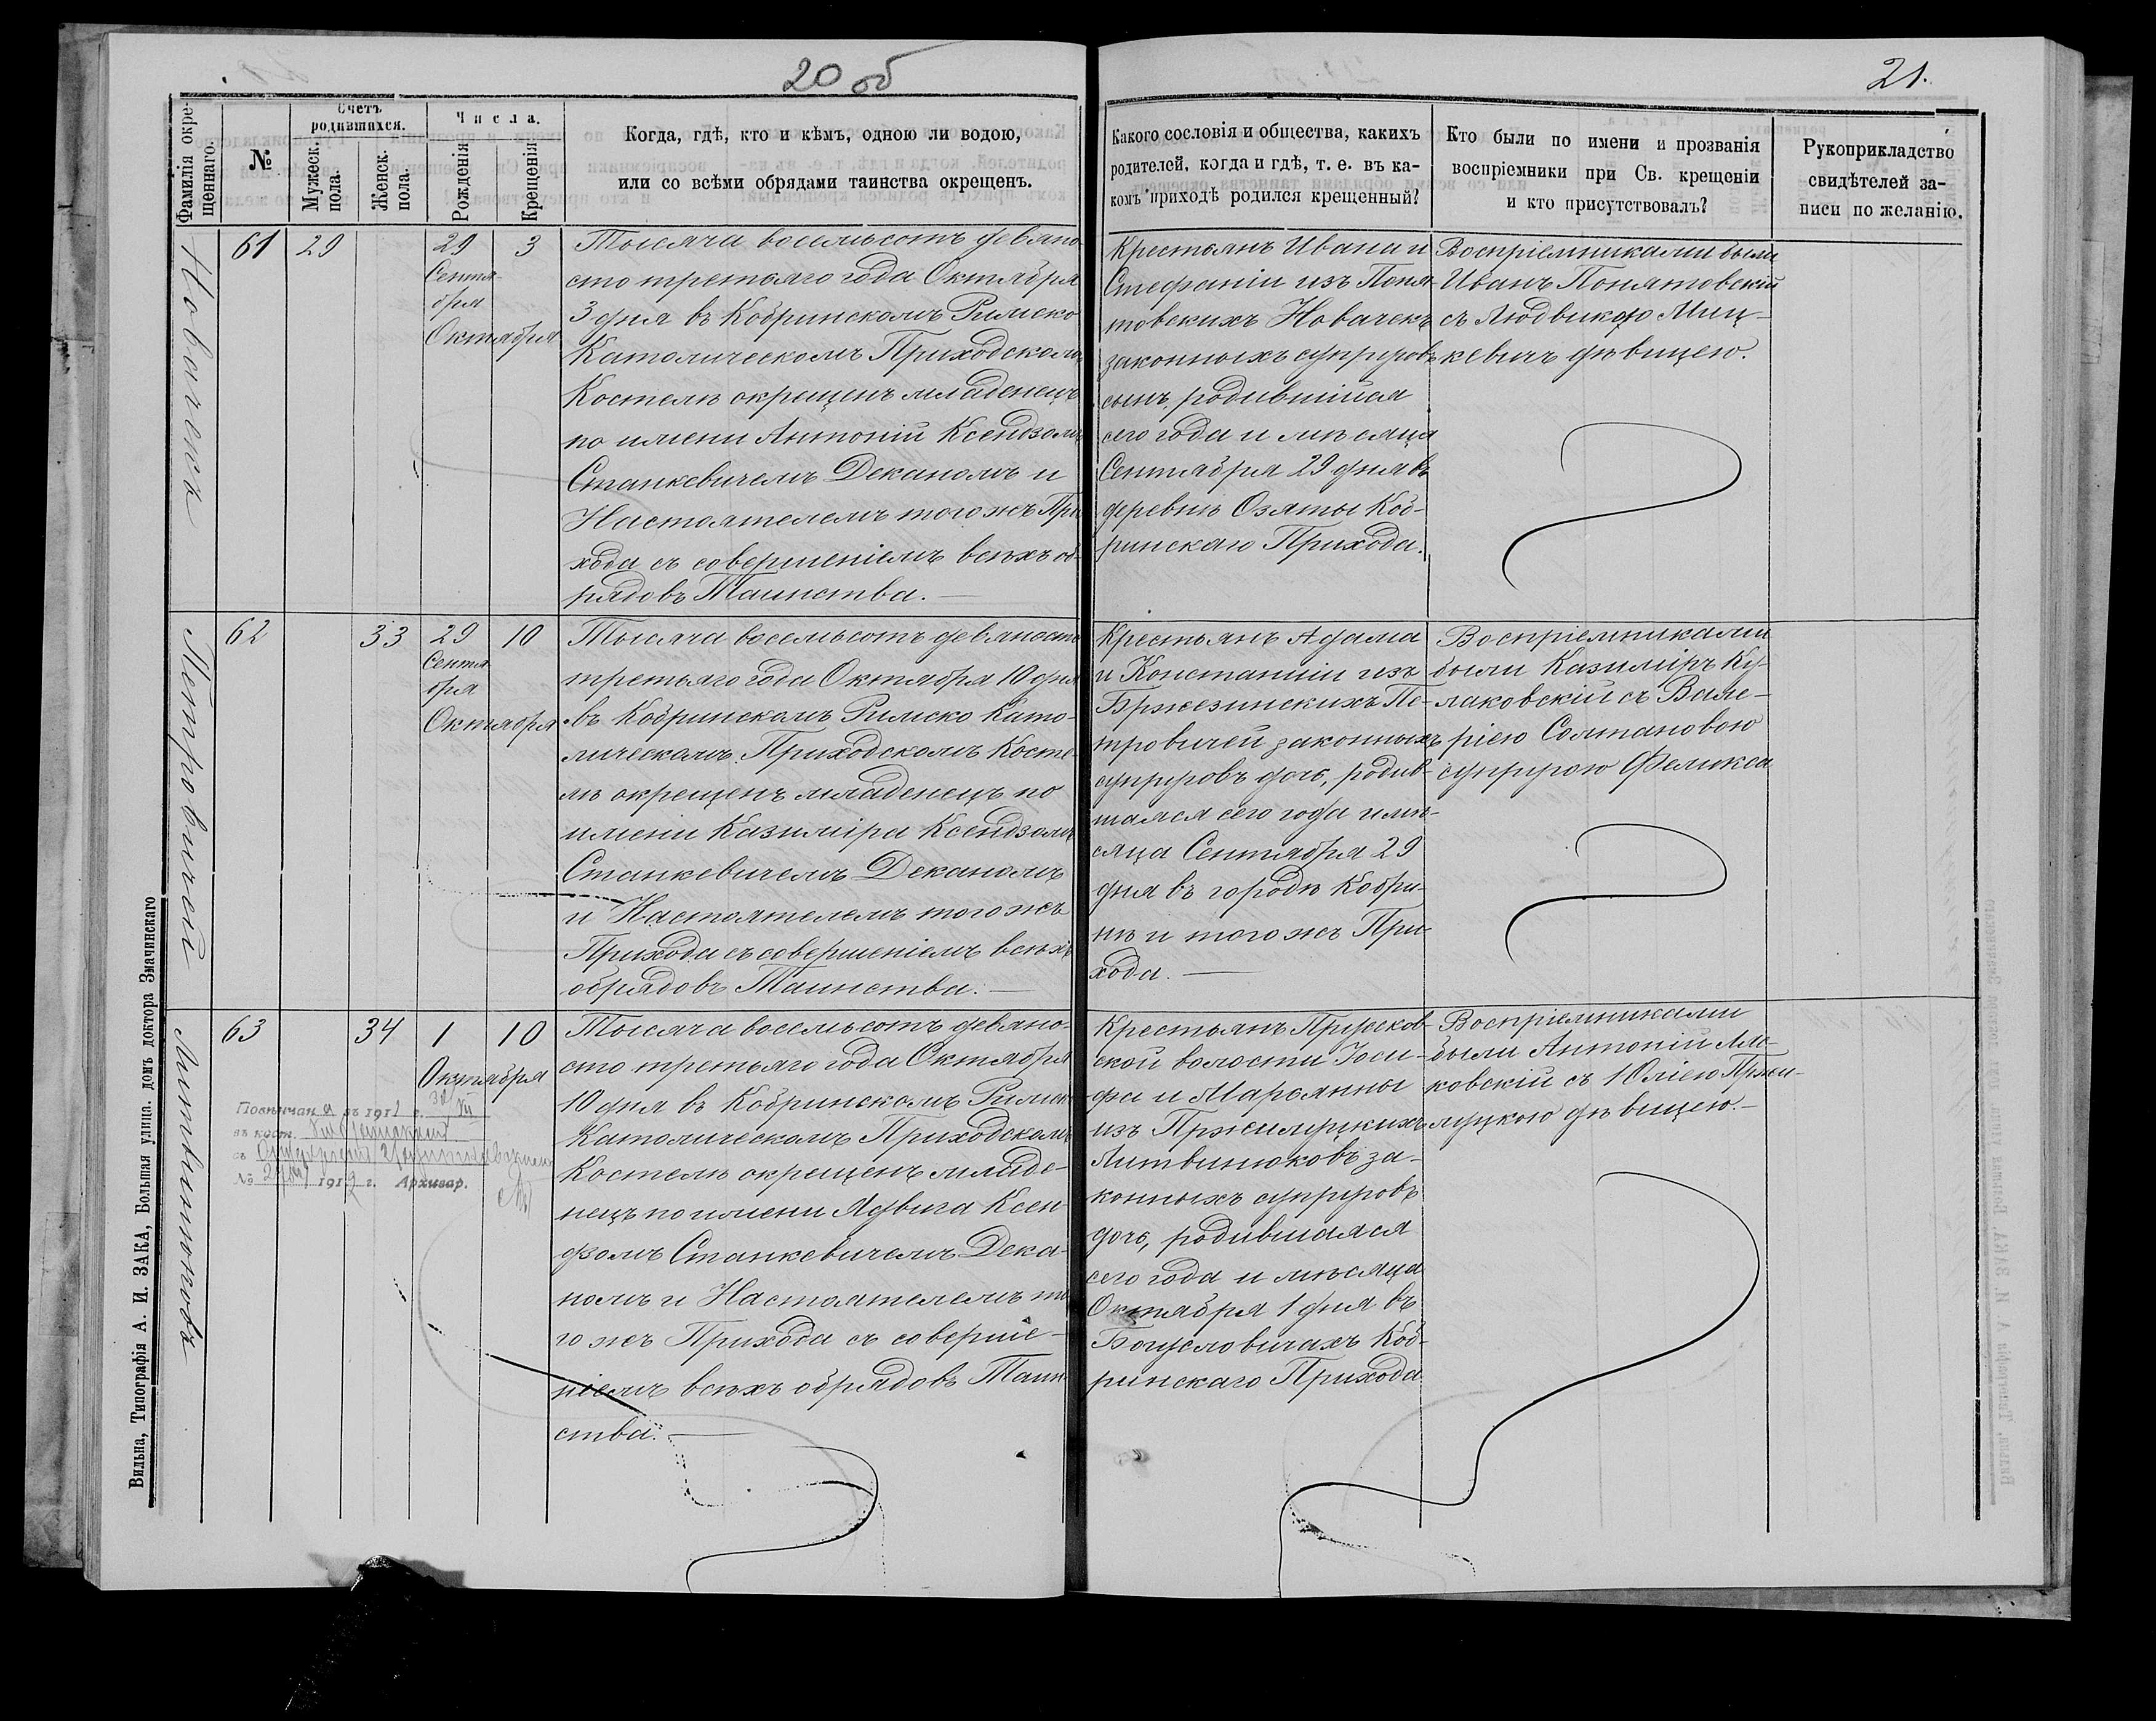 20 об
21.
Фамилія окрещеннаго.
№
Счетъ родившихся.
Мужеск. пола.
Женск. пола.
Числа.
Рожденія
Крещенія
Когда, гдѣ, кто и кѣмъ, одною ли водою,
или со всѣми обрядами таинства окрещенъ.
Какого сословія и общества, какихъ
родителей, когда и гдѣ, т. е. въ ка-
комъ приходѣ родился крещенный?
Кто были по имени и прозванія
воспріемники при Св. крещеніи
и кто присутствовалъ?
Рукоприкладство
свидѣтелей за-
писи по желанію.
Новачекъ
61
29
29
Сентя-
бря
3
Октября
Тысяча восемьсотъ девяно
сто третьяго года Октября
3 дня въ Кобринскомъ Римско
Католическомъ Приходскомъ
Костелѣ окрещенъ младенецъ
по имени Антоній Ксендзомъ
Станкевичемъ Деканомъ и
Настоятелемъ того жъ При
хода съ совершеніемъ всѣхъ об-
рядовъ Таинства.
Крестьянъ Ивана и
Стефаніи изъ Поня-
товскихъ Новачекъ
законныхъ супруговъ
сынъ, родившійся
сего года и мѣсяца
Сентября 29 дня въ
деревнѣ Озяты Коб-
ринскаго Прихода.
Воспріемниками были
Иванъ Понятовскій
съ Людвикою Миц-
кевичъ дѣвицею.
Петровичей
62
33
29
Сентя
бря
10
Октября
Тысяча восемьсотъ девяносто
третьяго года Октября 10 дня
въ Кобринскомъ Римско Като-
лическомъ Приходскомъ Косте-
лѣ окрещенъ младенецъ по
имени Казиміра Ксендзомъ
Станкевичемъ Деканомъ
и Настоятелемъ того жъ
Прихода съ совершеніемъ всѣхъ
обрядовъ Таинства.
Крестьянъ Адама
и Констанціи изъ
Бржезинскихъ Пе-
тровичей законныхъ
супруговъ дочь, родив-
шаяся сего года и мѣ-
сяца Сентября 29
дня въ городѣ Кобри-
нѣ и того жъ При-
хода.
Воспріемниками
были Казиміръ Ку-
лаковскій съ Вале-
ріею Солтановою
супругою Феликса
Литвинюковъ
63
34
1
10
Октября
Повѣнчана въ 1912 г.
въ кост.
съ
№ 1912 г. Архивар.
Тысяча восемьсотъ девяно-
сто третьяго года Октября
10 дня въ Кобринскомъ Римско
Католическомъ Приходскомъ
Костелѣ окрещенъ младе-
нецъ по имени Ядвига Ксен-
дзомъ Станкевичемъ Дека-
номъ и Настоятелемъ то
го жъ Прихода съ соверше-
ніемъ всѣхъ обрядовъ Таин
ства.
Крестьянъ
ской волости Іоси-
фа и Маріянны
изъ Пржилуцкихъ
Литвинюковъ за-
конныхъ супруговъ
дочь, родившаяся
сего года и мѣсяца
Октября 1 дня въ
Богусловичахъ Коб-
ринскаго Прихода
Воспріемниками
были Антоній
ковскій съ Юліею Пржи-
луцкою дѣвицею.
Вильна, Типографія А. И. ЗАКА, Большая улица. домъ доктора Змачинскаго